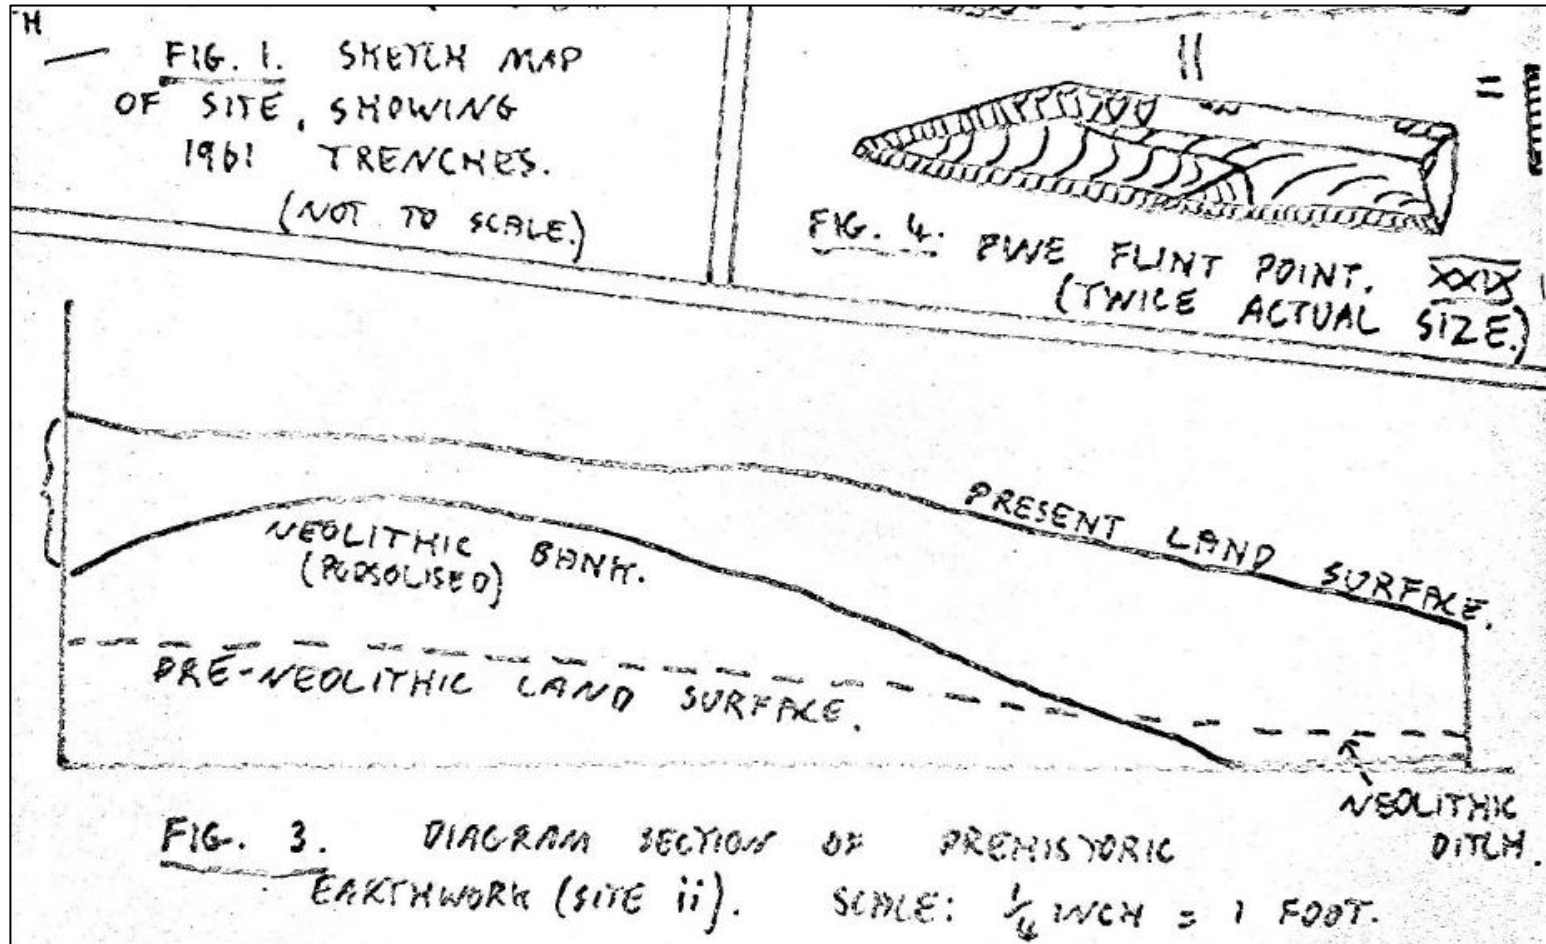 H
FIG. 1. SKETCH MAP
OF SITE, SHOWING
1961 TRENCHES.
(NOT TO SCALE.)
FIG. 4. FLINT POINT. XXIX
(TWICE ACTUAL SIZE.)
PRESENT LAND SURFACE.
NEOLITHIC BANK.
(PODSOLISED)
PRE-NEOLITHIC LAND SURFACE.
NEOLITHIC
DITCH.
FIG. 3. DIAGRAM SECTION OF PREHISTORIC
EARTHWORK (SITE ii). SCALE: 1/4 INCH = 1 FOOT.